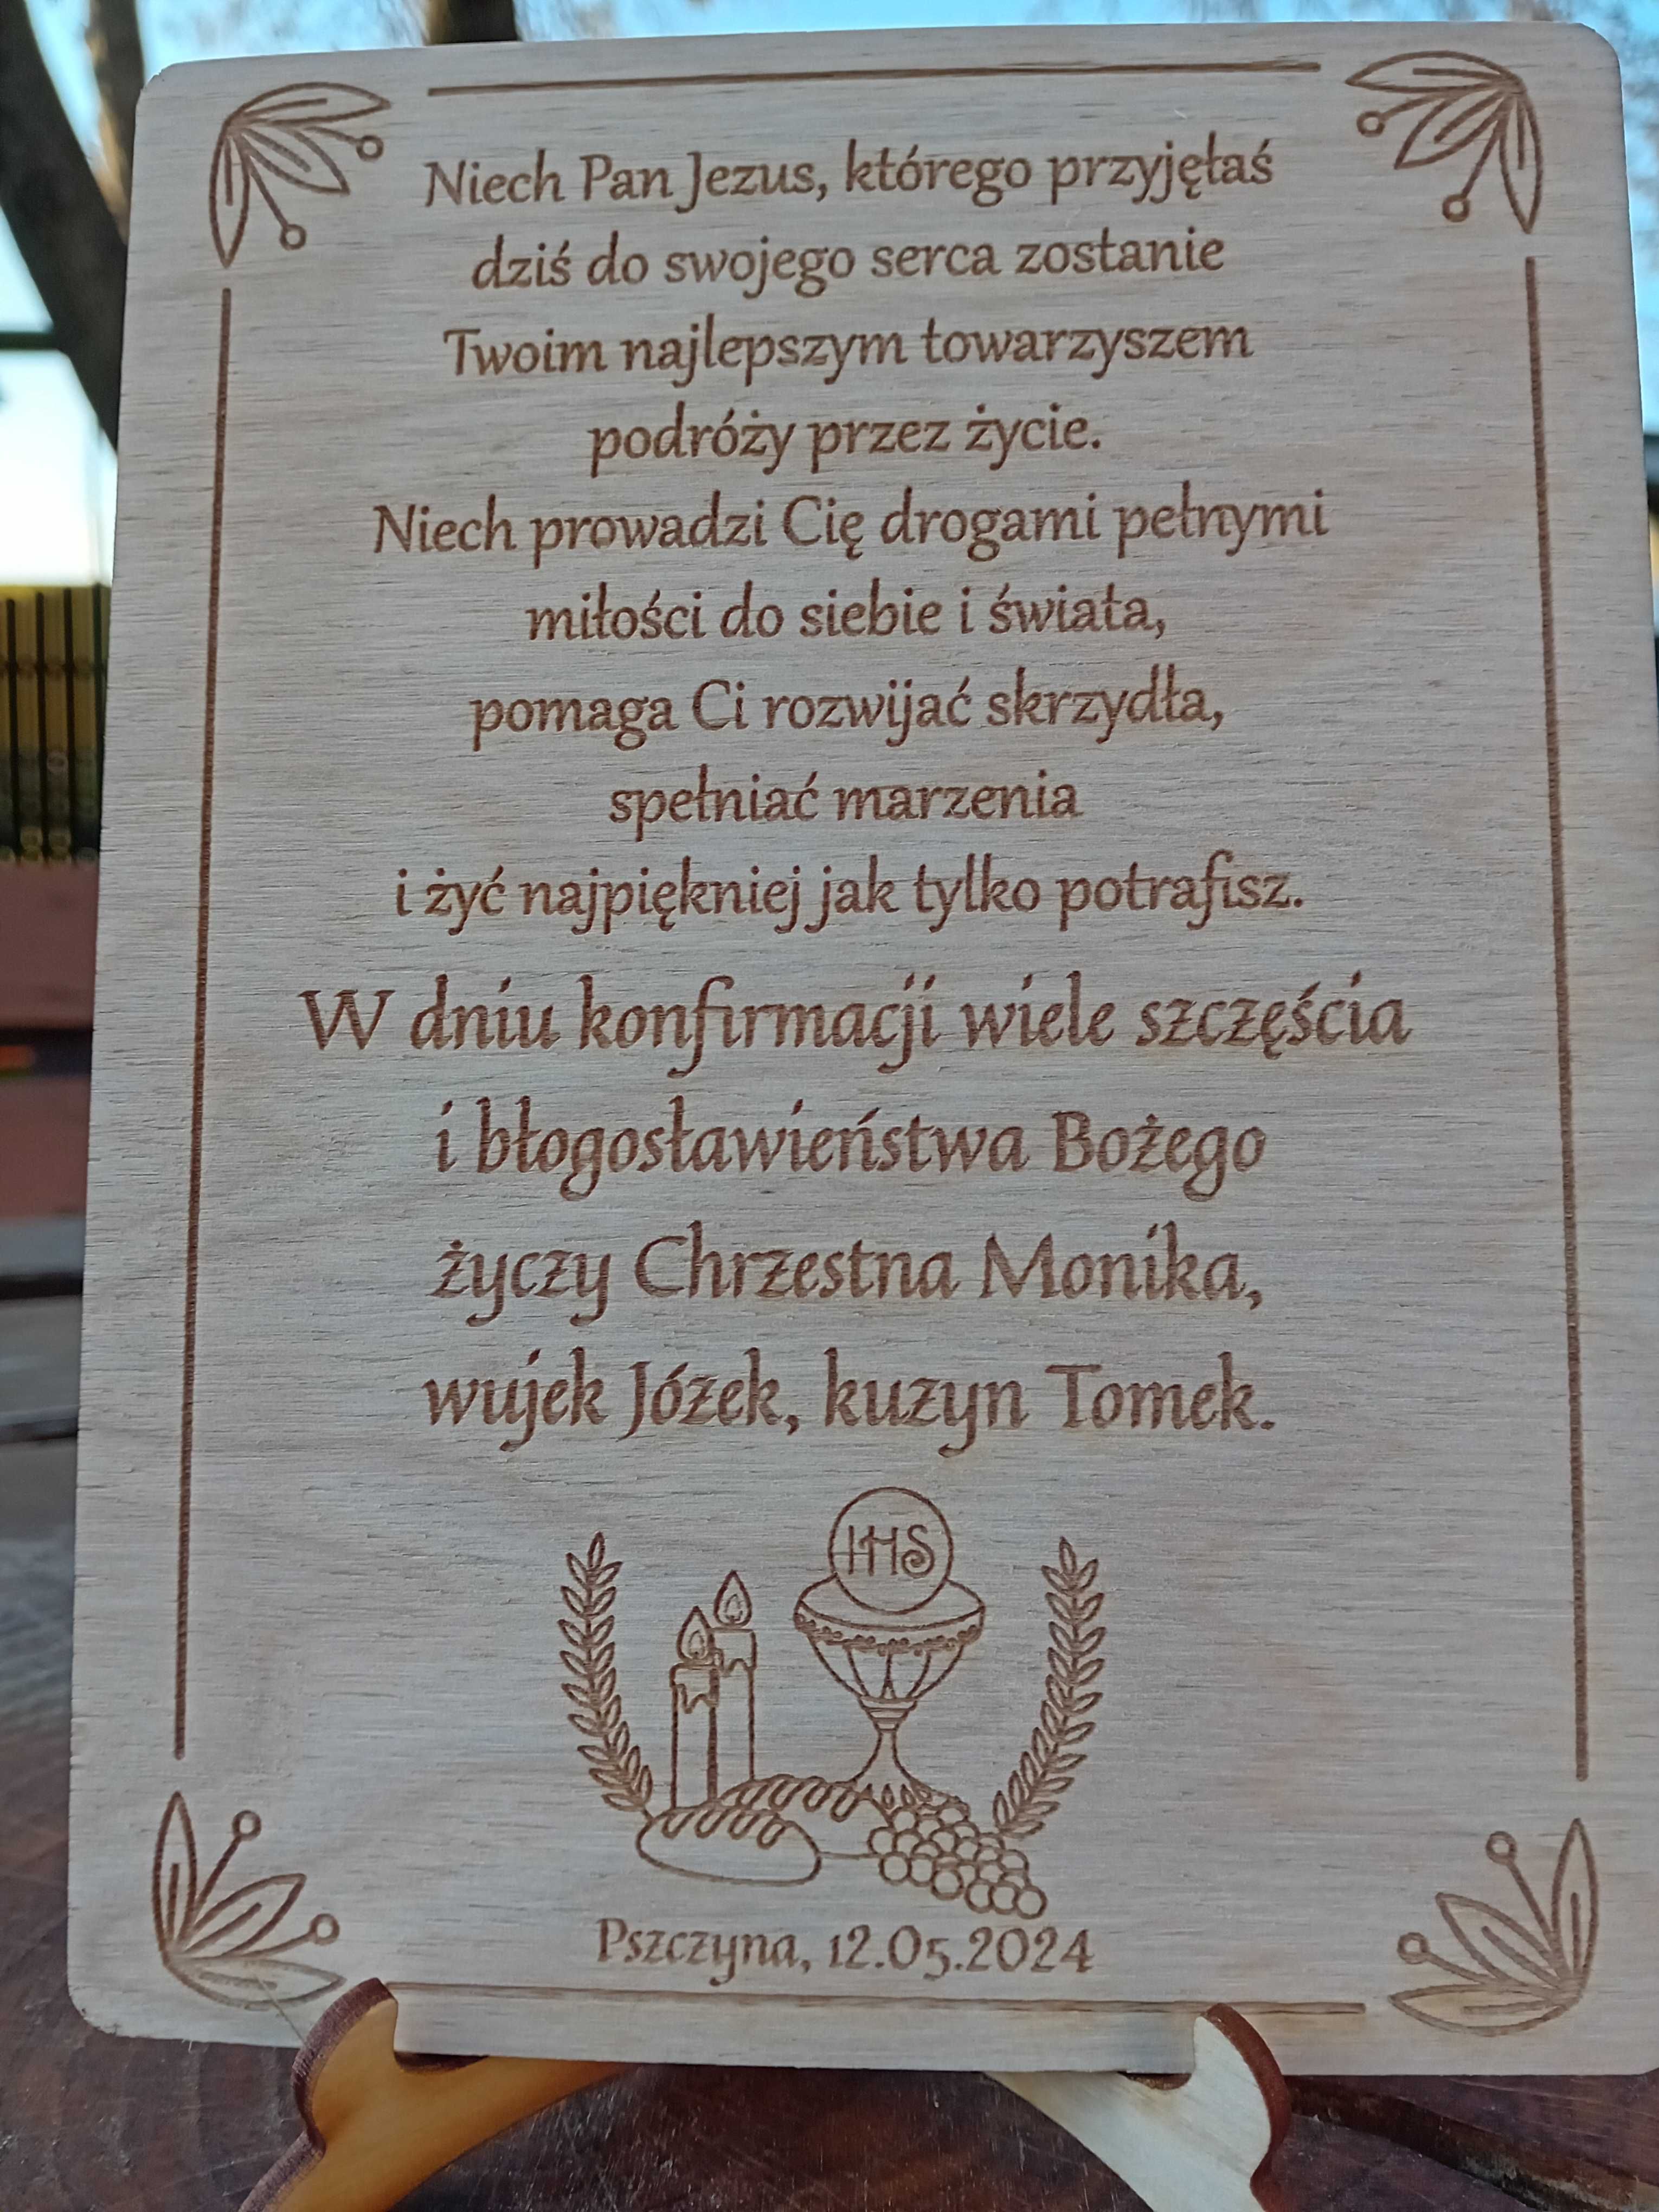 Niech Pan Jezus, którego przyjęłaś
dziś do swojego serca zostanie
Twoim najlepszym towarzyszem
podróży przez życie.
Niech prowadzi Cię drogami pełnymi
miłości do siebie i świata,
pomaga Ci rozwijać skrzydła,
spełniać marzenia
i żyć najpiękniej jak tylko potrafisz.
W dniu konfirmacji wiele szczęścia
i błogosławieństwa Bożego
życzy Chrzestna Monika,
wujek Józek, kuzyn Tomek.
IHS
Pszczyna, 12.05.2024